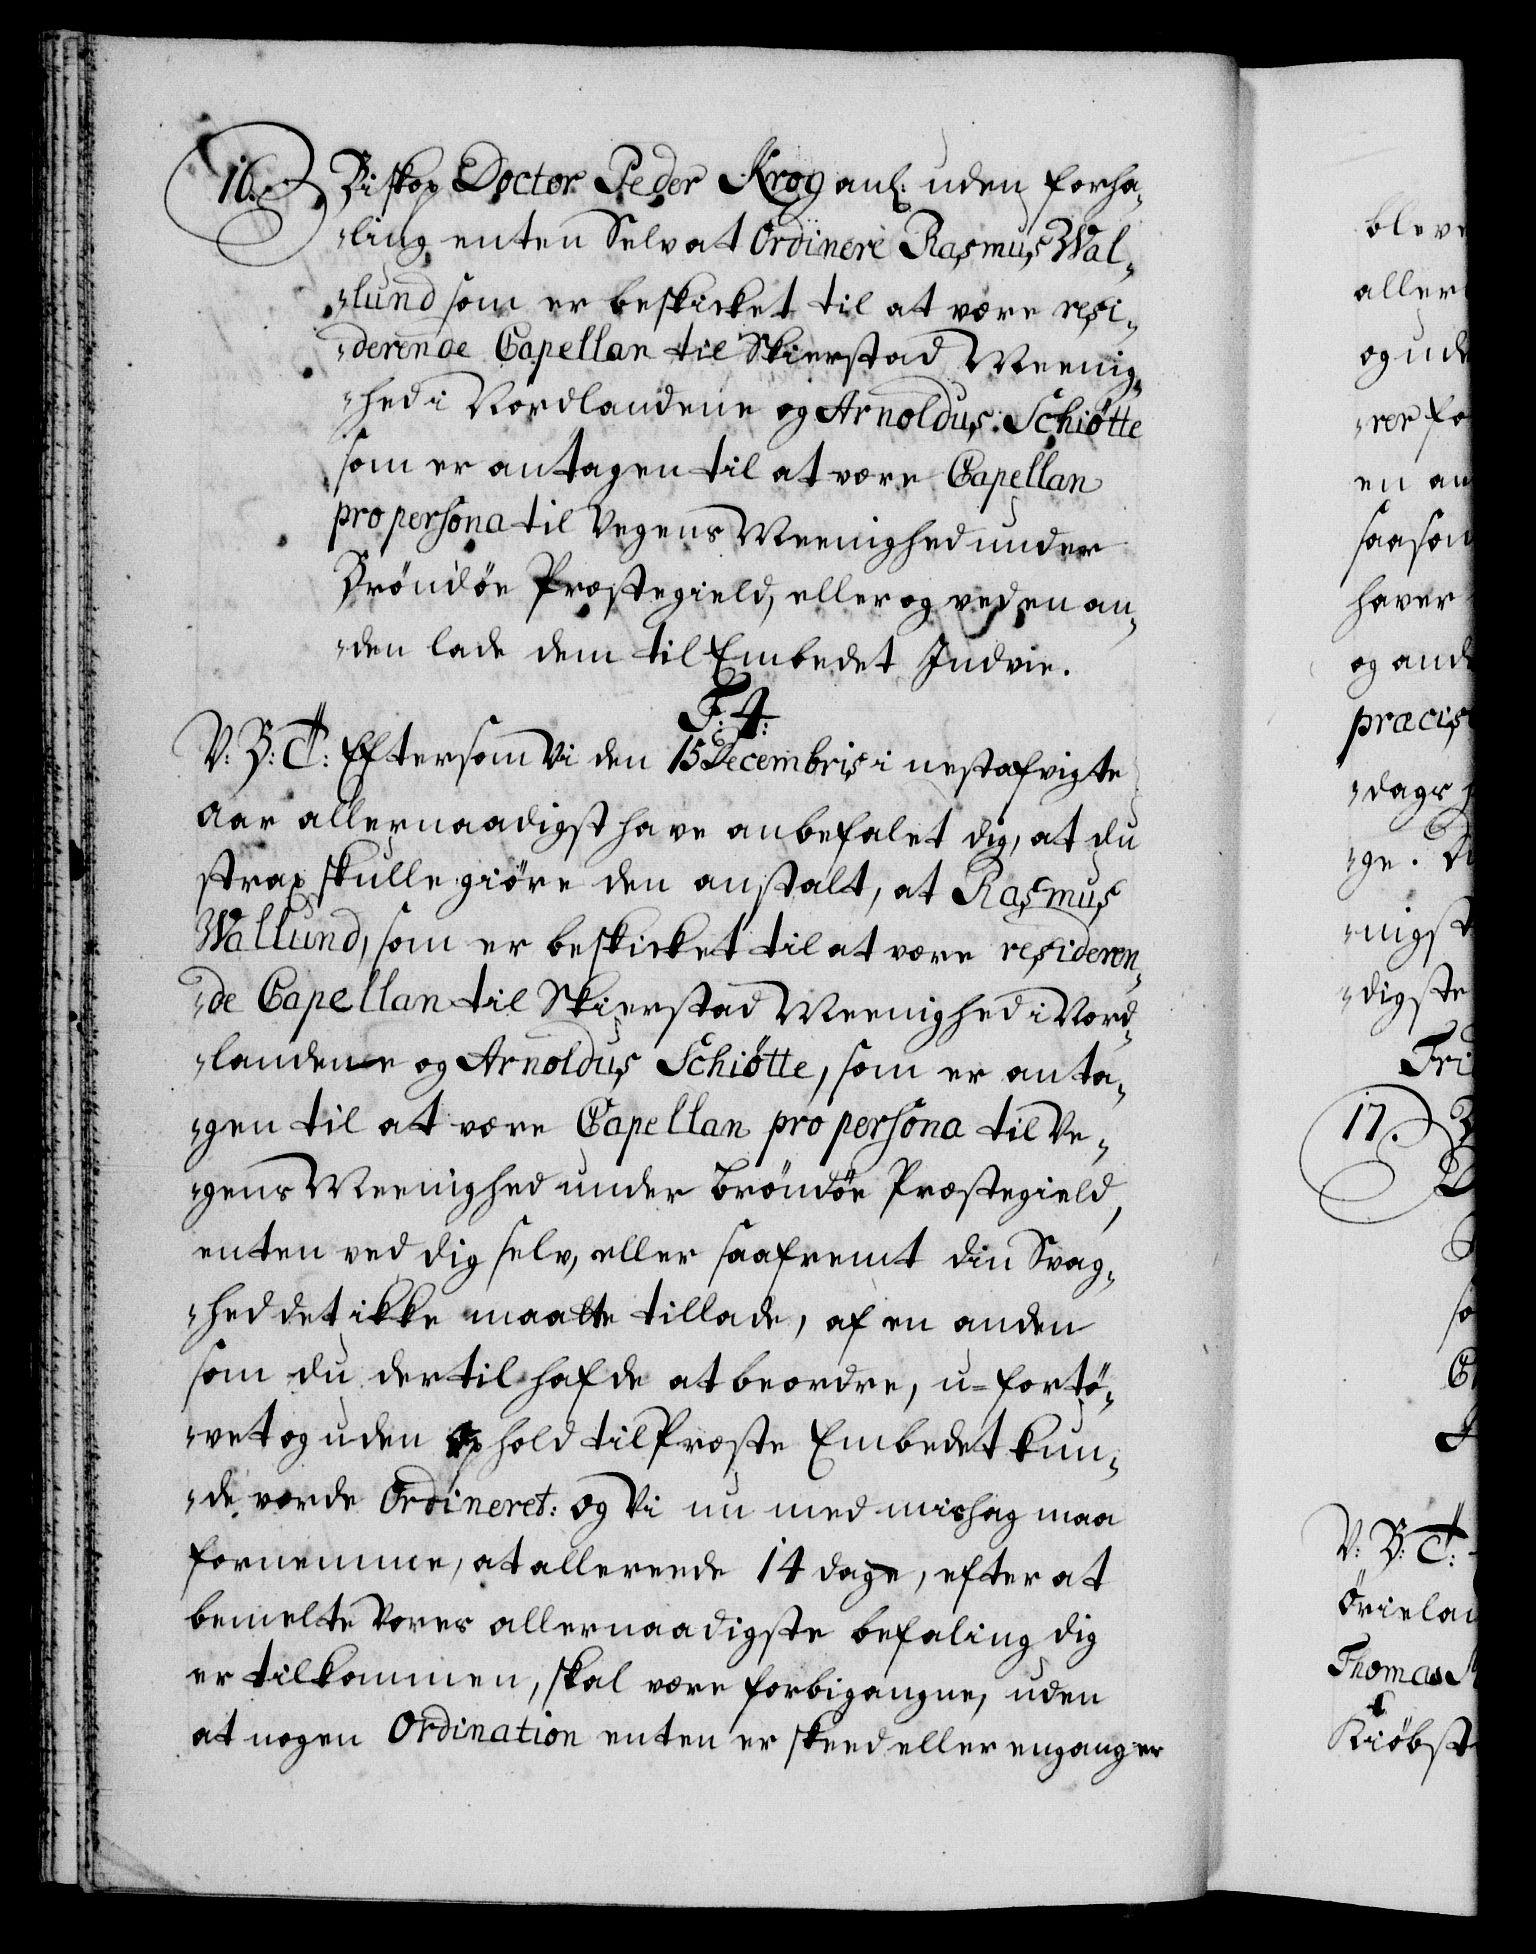 16. Biskop Doctor Peder Krog anl: uden forha-
-ling enten Selv at Ordinere Rasmus Wal-
-lund som er beskicket til at være resi-
-derende Capellan til Skierstad Meenig-
-hed i Nordlandene og Arnoldus Schiøtte
som er antagen til at være Capellan
pro persona til Vegens Meenighed under
Brøndøe Præstegield, eller og ved en an-
-den lade dem til Embedet Indvie.
F: 4:
V: B: T: Eftersom Vi den 15 Decembris i nestafvigte
aar allernaadigst have anbefalet dig, at du
strax skulle giøre den anstalt, at Rasmus
Wallund, som er beskicket til at være resideren-
-de Capellan til Skierstad Meenighed i Nord-
-landene og Arnoldus Schiøtte, som er anta-
-gen til at være Capellan pro persona til Ve-
-gens Meenighed under Brøndøe Præstegield,
enten ved dig selv, eller saafremt din Svag-
-hed det ikke maatte tillade, af en anden
som du dertil hafde at beordre, u-fortø-
-vet og uden ophold til Præste Embedet kun-
-de vorde Ordineret: og Vi nu med mishag maa
fornemme, at allereede 14 dage, efter at
bemelte Vores allernaadigste befaling dig
er tilkommen, skal være forbigangne, uden
at nogen Ordination enten er skeed eller engang er
bleve
aller
og ude
-rer fo
en an
saasom
haver
og and
præcis
-dags
-ge.
-nigst
-digste
Fri
17.
so
V: B: T:
Ørielan
Thomas
Kiøbst